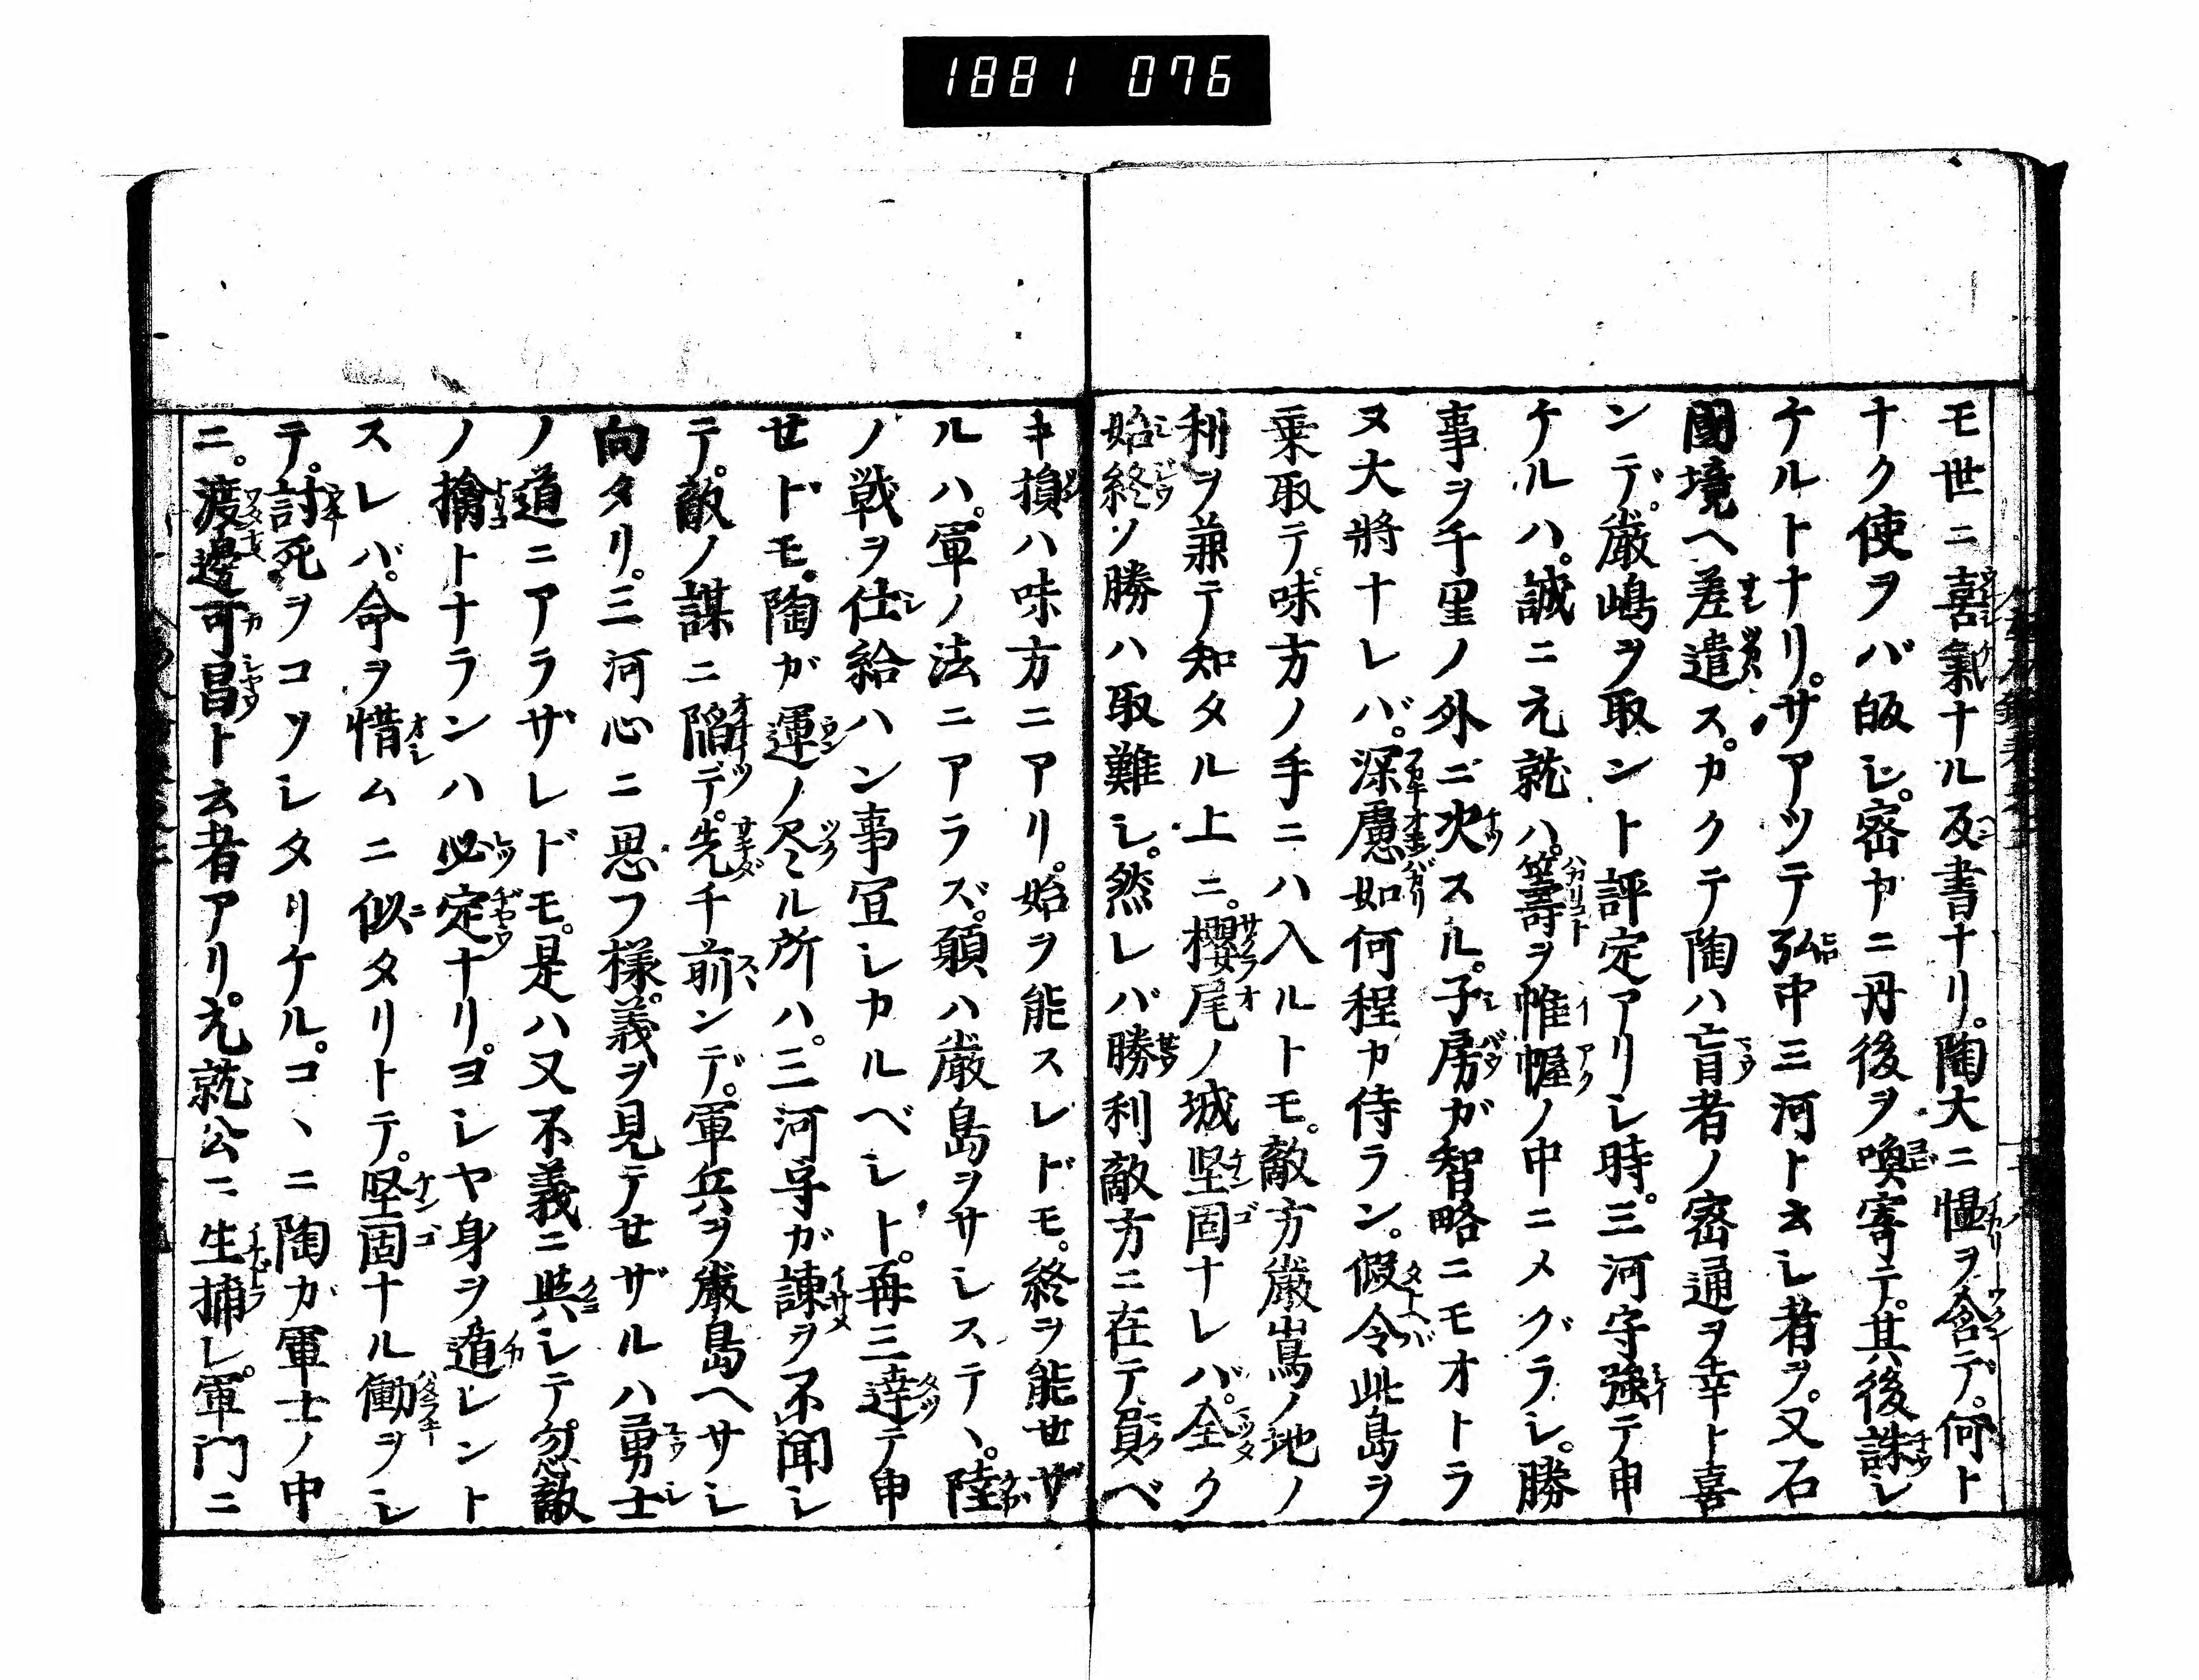 1881 076
モ世ニ喜氣ナル反書ナリ。陶大ニ慍ヲ含デ。何ト
ナク使ヲバ皈シ。密ヤニ丹後ヲ喚寄テ。其後誅シ
ケルトナリ。サアツテ弘中三河ト云シ者ヲ。又石
國境ヘ差遣ス。カクテ陶ハ盲者ノ密通ヲ幸ト喜
ンデ。嚴嶋ヲ取ント評定アリシ時。三河守強テ申
ケルハ。誠ニ元就ハ。籌ヲ帷幄ノ中ニメグラシ。勝
事ヲ千里ノ外ニ决スル。子房ガ智略ニモオトラ
ヌ大將ナレバ。深慮如何程ヤ侍ラン。假令此島ヲ
乗取テ。味方ノ手ニハ入ルトモ。敵方嚴嶌ノ地ノ
利ヲ兼テ知タル上ニ。櫻尾ノ城堅固ナレバ。全ク
始終ソ勝ハ取難シ。然レバ勝利敵方ニ在テ員ベ
キ損ハ味方ニアリ。始ヲ能スレドモ。終ヲ能せザ
ルハ。軍ノ法ニアラズ。願ハ嚴島ヲサシステヽ。陸
ノ戦ヲ仕給ハン事宜シカルベシト。再三達テ申
せドモ。陶ガ運ノ尽ル所ハ。三河守ガ諫ヲ不聞シ
テ。敵ノ謀ニ陥デ。先千前ンデ。軍兵ヲ嚴島ヘサシ
向タリ。三河心ニ思フ様。義ヲ見テせザルハ勇士
ノ道ニアラザレドモ。是ハ又不義ニ與シテ忽敵
ノ擒トナランハ必定ナリ。ヨシヤ身ヲ遁レント
スレバ。命ヲ惜ムニ似タリトテ。堅固ナル働ヲシ
テ。討死ヲコソシタリケル。コヽニ陶ガ軍士ノ中
ニ。渡邊可昌ト云者アリ。元就公ニ生捕レ。軍門ニ